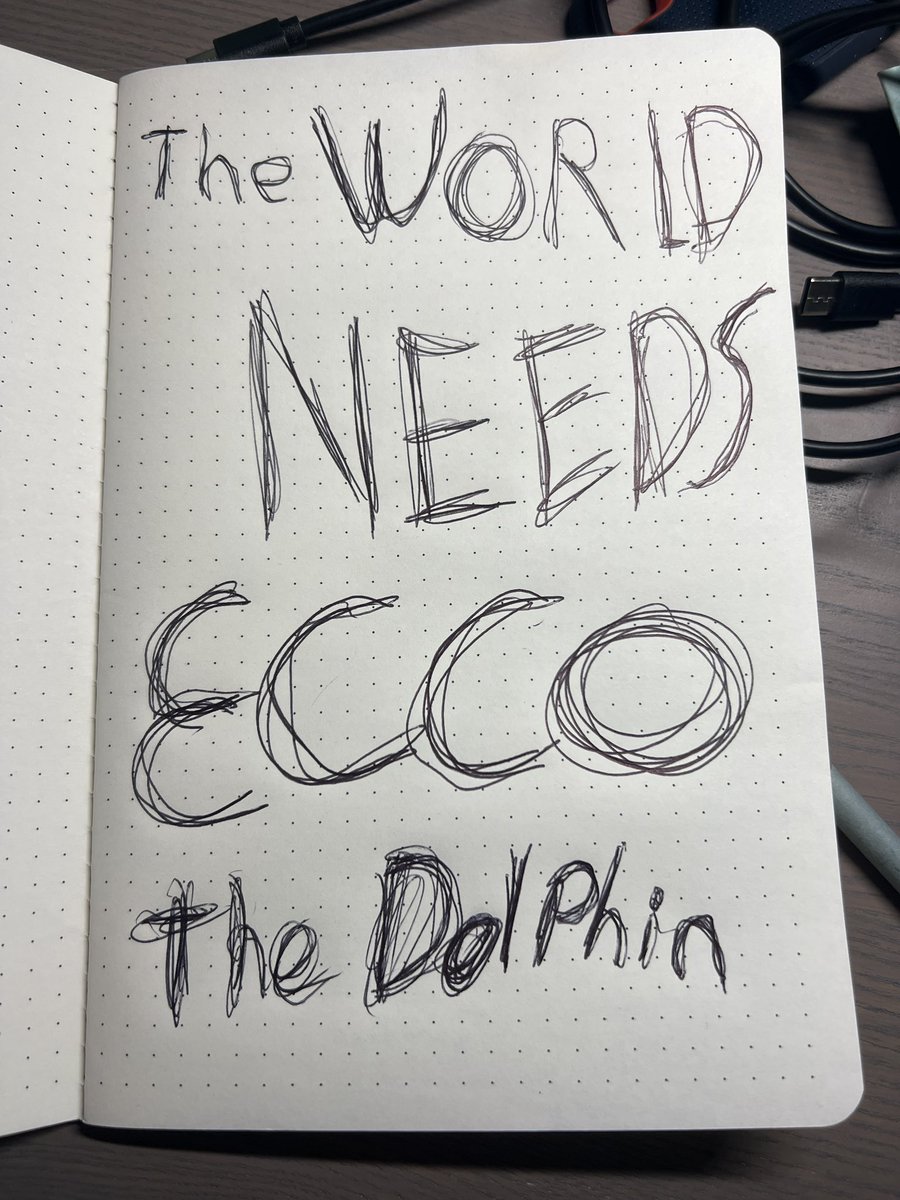 The WORLD
NEEDS
ECCO
the Dolphin